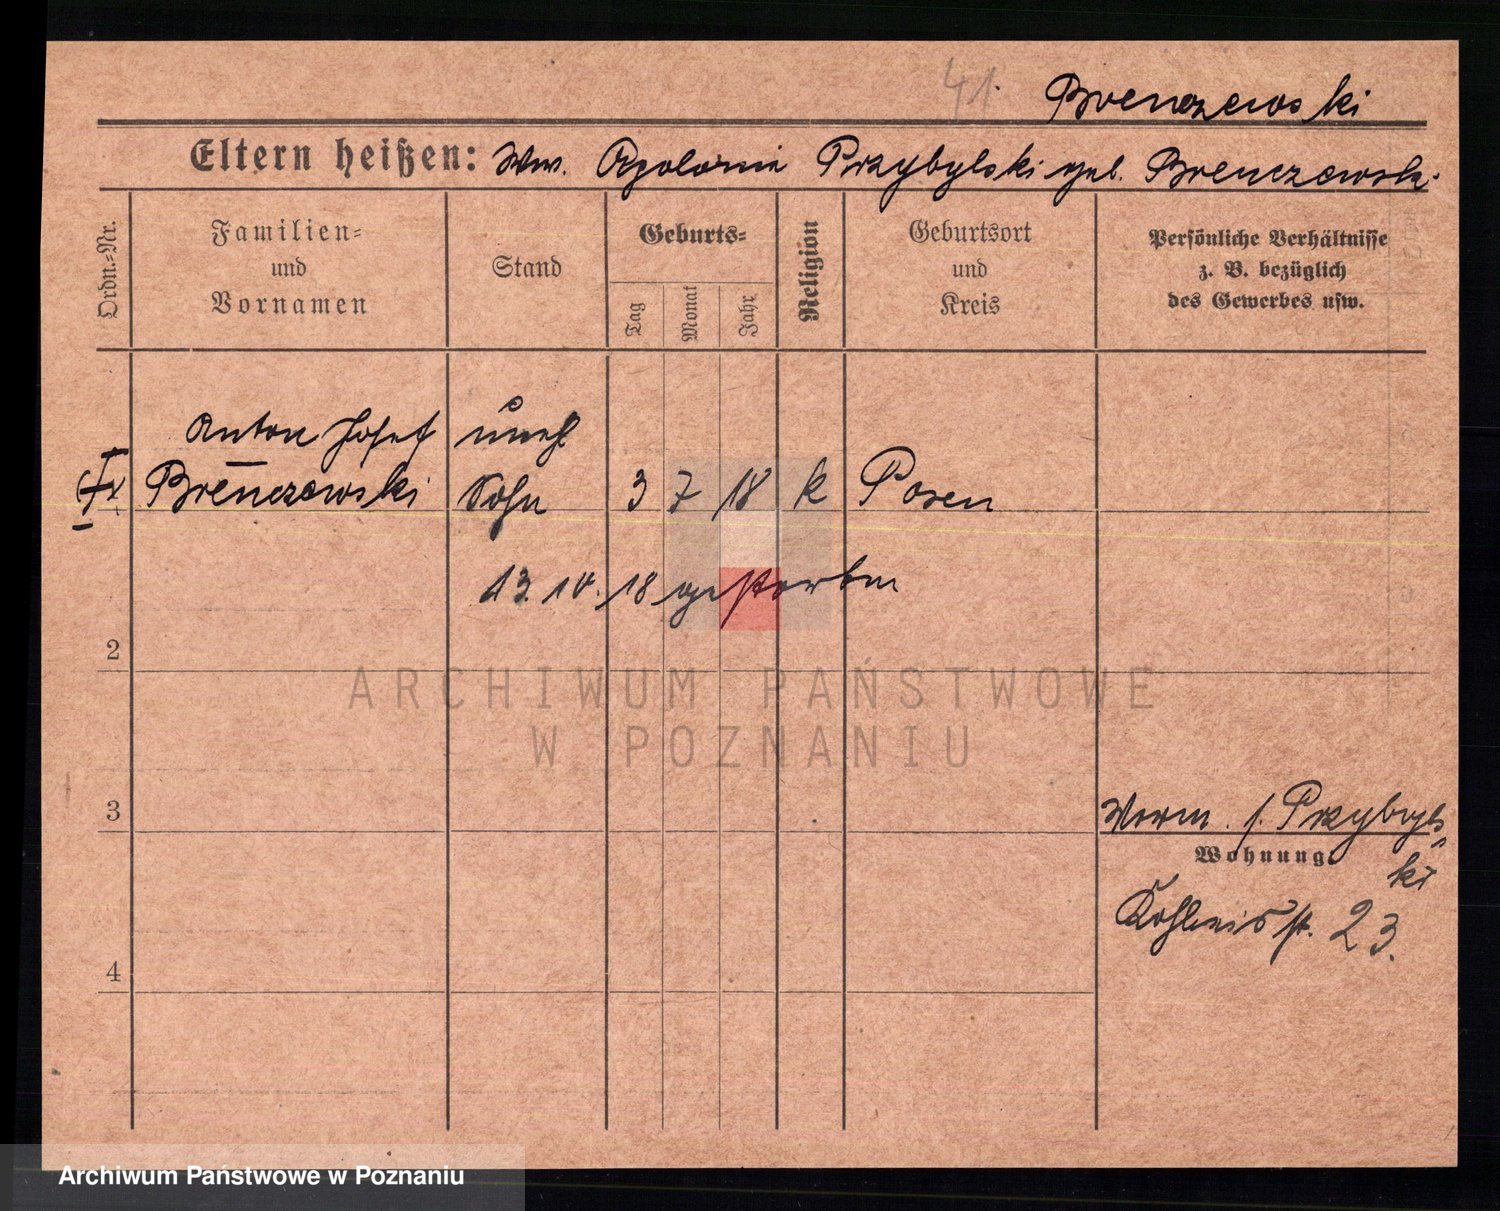 41. Brenczewski
Eltern heißen: Ww. Apolonia Przybylski geb. Brenczewski
Ordn.-Nr.
Familien-
und
Vornamen
Stand
Geburts-
Tag
Monat
Jahr
Religion
Geburtsort
und
Kreis
Persönliche Verhältnisse
z. B. bezüglich
des Gewerbes usw.
Anton Josef unehl.
Brenczewski Sohn 3 7 18 k Posen
13. 10. 18 gestorben
2
ARCHIWUM PAŃSTWOWE
W POZNANIU
3
Worm. f. Przybyls
Wohnung
ki
4
23.
Archiwum Państwowe w Poznaniu